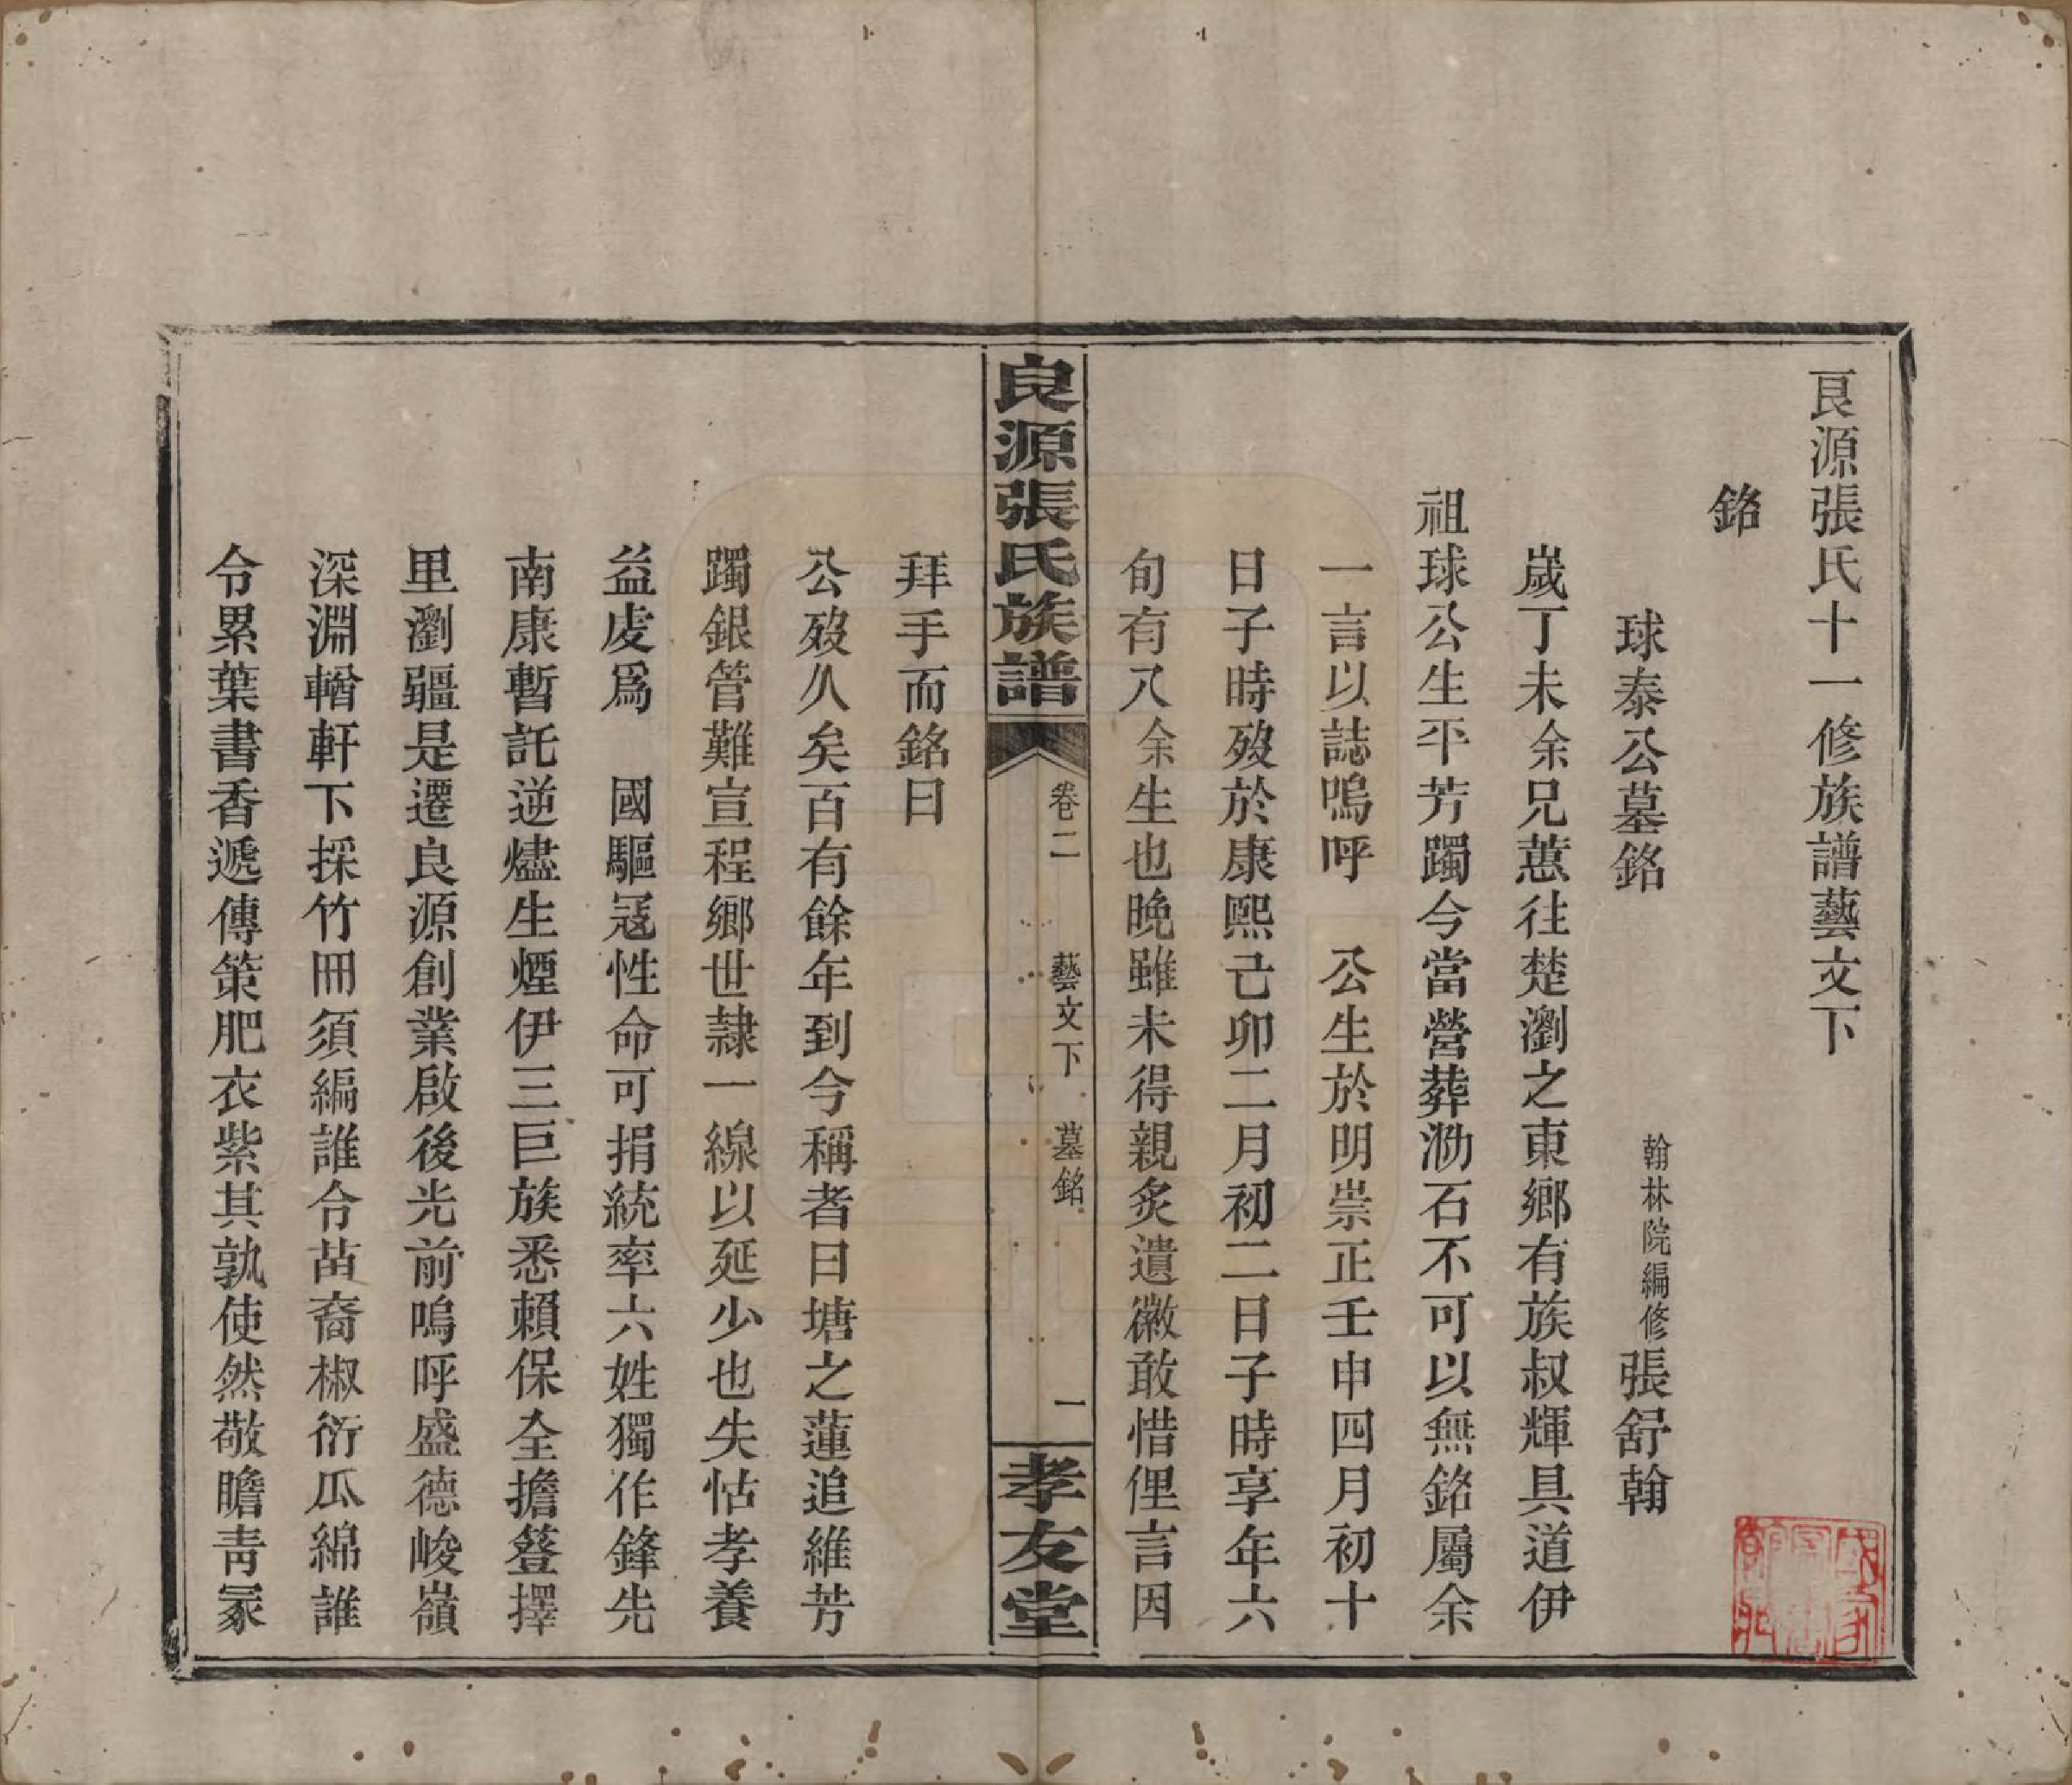 良源張氏十一修族譜藝文下
銘
球泰公墓銘
翰林院編修張舒翰
歲丁未余兄蕙往楚瀏之東鄉有族叔輝具道伊
祖球公生平芳躅今當營葬泐石不可以無銘屬余
一言以誌嗚呼　公生於明崇正壬申四月初十
日子時歿於康熙己卯二月初二日子時享年六
旬有八余生也晚雖未得親炙遺徽敢惜俚言因
良源張氏族譜
卷二　藝文下　墓銘
一
孝友堂
拜手而銘曰
公歿久矣百有餘年到今稱者曰塘之蓮追維芳
躅銀管難宣程鄉世隸一線以延少也失怙孝養
益虔爲　國驅寇性命可捐統率六姓獨作鋒先
南康暫託逆燼生煙伊三巨族悉賴保全擔簦擇
里瀏疆是遷良源創業啟後光前嗚呼盛德峻嶺
深淵輶軒下採竹冊須編誰令苗裔椒衍瓜綿誰
令累葉書香遞傳策肥衣紫其孰使然敬瞻靑冢